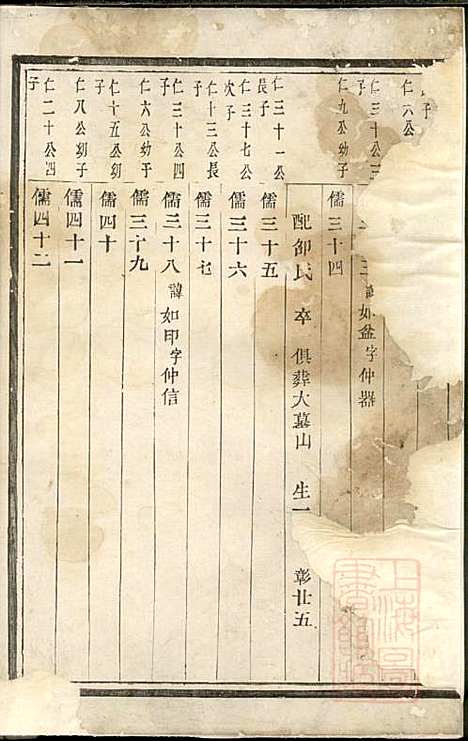 子
仁六公
仁三十公三
諱如盆字仲器
仁九公幼子
儒三十四
配邵氏 卒 俱葬大墓山 生一 彰廿五
仁三十一公長子
儒三十五
仁三十七公次子
儒三十六
仁十三公長子
儒三十七
仁三十公四子
儒三十八 諱如印字仲信
仁六公幼子
儒三十九
仁十五公幼子
儒四十
仁八公幼子
儒四十一
仁二十公四子
儒四十二